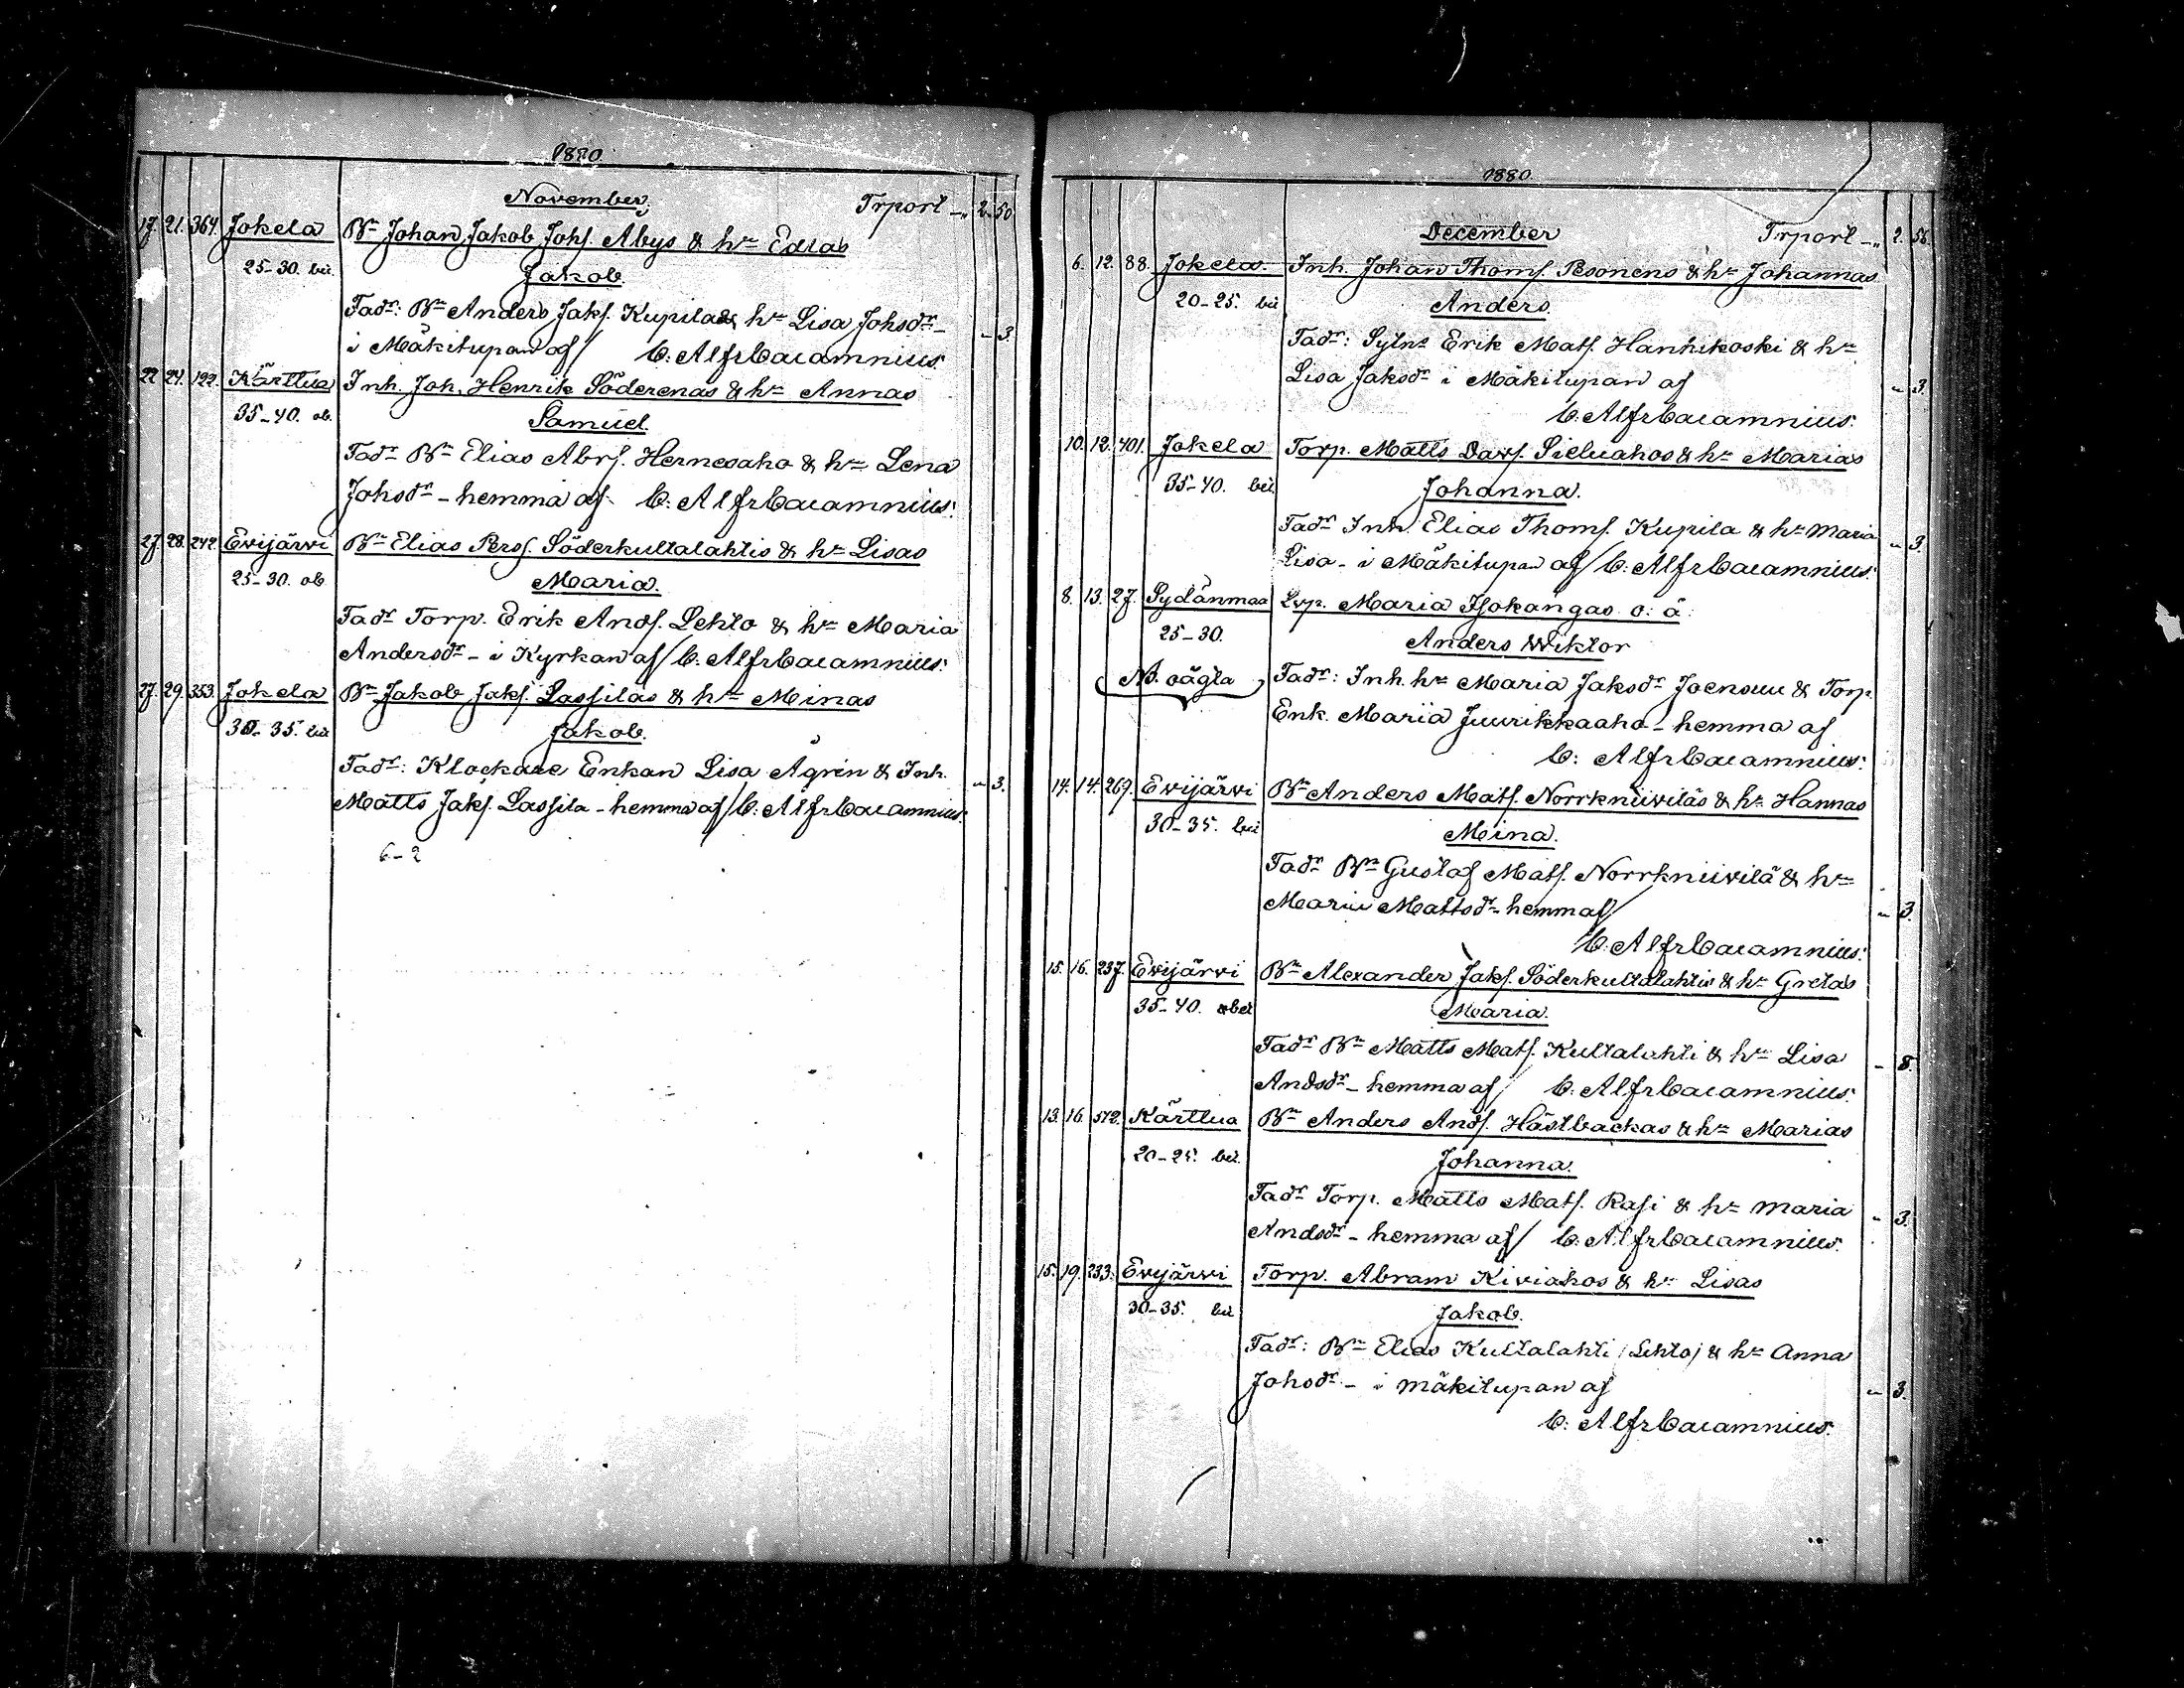 1880.
November. Trport -„ 2. 50
17. 21. 364. Jokela Bn Johan Jakob Johs. Abys & hn Edlas
25-30. bä. Jakob.
Fadr: Bn Anders Jaks. Kupila & hn Lisa Johsdr -
i Mäkitupan af/ C: Alfr Cajamnius. „ 3.
22 24. 122. Kärttua Inh. Joh. Henrik Söderenas & hn Annas
35-40. ob. Samuel.
Fadr Bn Elias Abrs. Hernesaho & hn Lena
Johsdr - hemma af C: Alfr Cajamnius:
27. 28. 242. Evijärvi Bn Elias Pers. Söderkultalahtis & hn Lisas
25-30. ob. Maria.
Fadr Torp. Erik Ands. Lehto & hn Maria
Andersdr - i Kyrkan af/ C: Alfr Cajamnius:
27. 29. 353. Jokela Bn Jakob Jaks. Lassilas & hn Minas
30-35. bä Jakob.
Fadr: Klockare Enkan Lisa Ågren & Inh.
Matts Jaks. Lassila - hemma af/ C: Alfr Cajamnius: „ 3.
6-2
1880.
December Trport -„ 2. 56.
6. 12. 88. Jokela. Inh. Johan Thoms. Pesonens & hn Johannas
20-25. bä Anders.
Fadr: Sytn: Erik Mats. Hanhikoski & hn
Lisa Jaksdr i Mäkitupan af „ 3.
C: Alfr Cajamnius:
10. 12. 401. Jokela Torp. Matts Davs. Sieluahos & hn Marias
35-40. bä Johanna.
Fadr Inh. Elias Thoms. Kupila & hn Maria „ 3.
Lisa - i Mäkitupan af/ C: Alfr Cajamnius:
8. 13. 27. Sydänmaa Lsp. Maria Isokangas o: ä:
25-30. Anders Wiktor
NB. oägta Fadr: Inh. hn Maria Jaksdr Joensuu & Torp.
Enk. Maria Juurikkaaho - hemma af
C: Alfr Cajamnius:
14. 14. 269. Evijärvi Bn Anders Mats. Norrkniiviläs & hn Hannas
30-35. bä Mina.
Fadr Bn Gustaf Mats. Norrkniivilä & hn
Maria Mattsdr - hemm af/ „ 3.
C: Alfr Cajamnius:
15. 16. 237. Evijärvi Bn Alexander Jaks. Söderkultalahtis & hn Gretas
35-40. bä Maria.
Fadr Bn Matts Mats. Kultalahti & hn Lisa
Andsdr - hemma af/ C: Alfr Cajamnius: - 8.
13. 16. 572. Kärttua Bn Anders Ands. Hästbackas & hn Marias
20-25. bä. Johanna.
Fadr Torp. Matts Mats. Rasi & hn Maria
Andsdr - hemma af/ C: Alfr Cajamnius. „ 3.
15. 19. 233. Evijärvi Torp. Abram Kiviahos & hn Lisas
30-35. bä Jakob.
Fadr: Bn Elias Kultalahti /Lehto/ & hn Anna
Johsdr - i mäkitupan af „ 3.
C: Alfr Cajamnius.